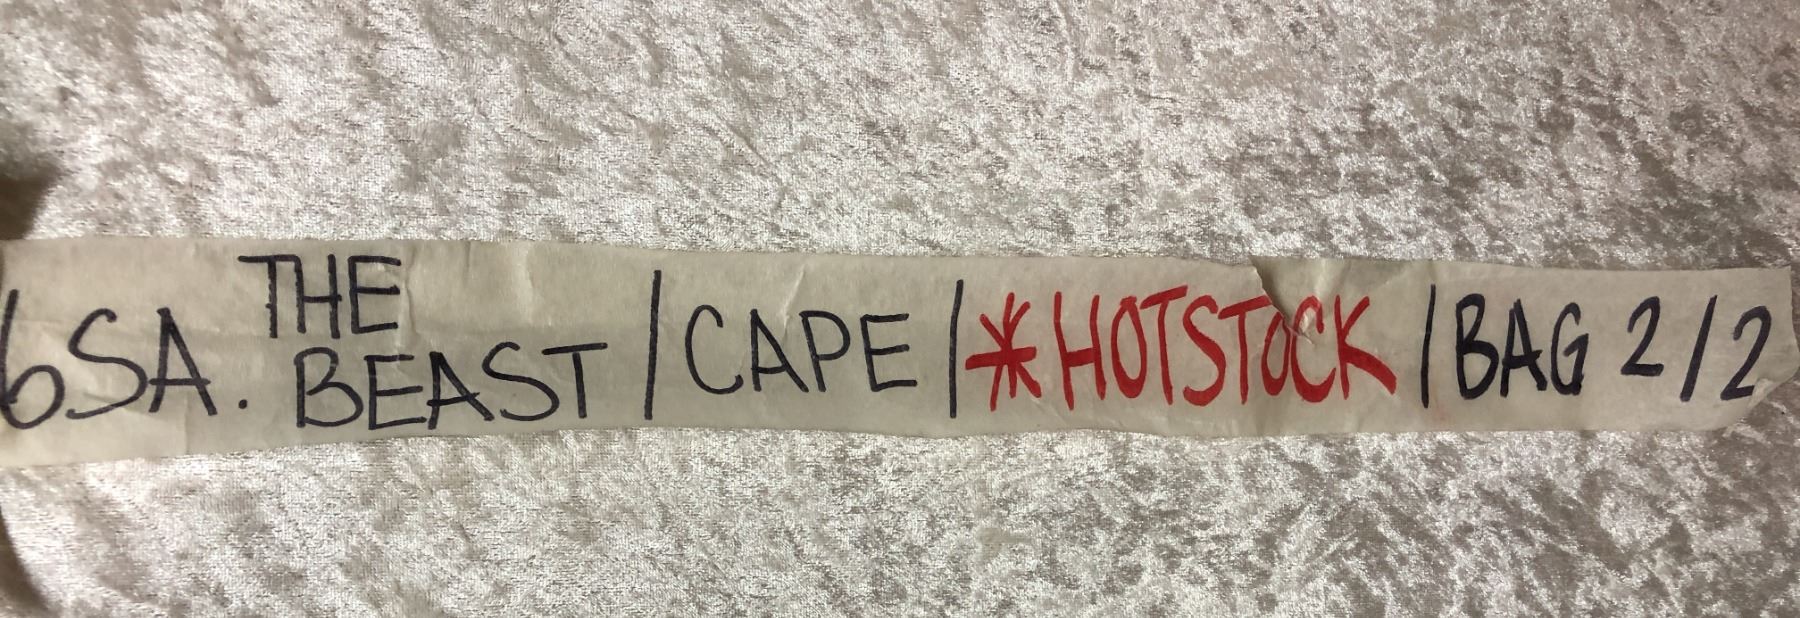 6SA. THE BEAST / CAPE / * HOTSTOCK / BAG 2/2